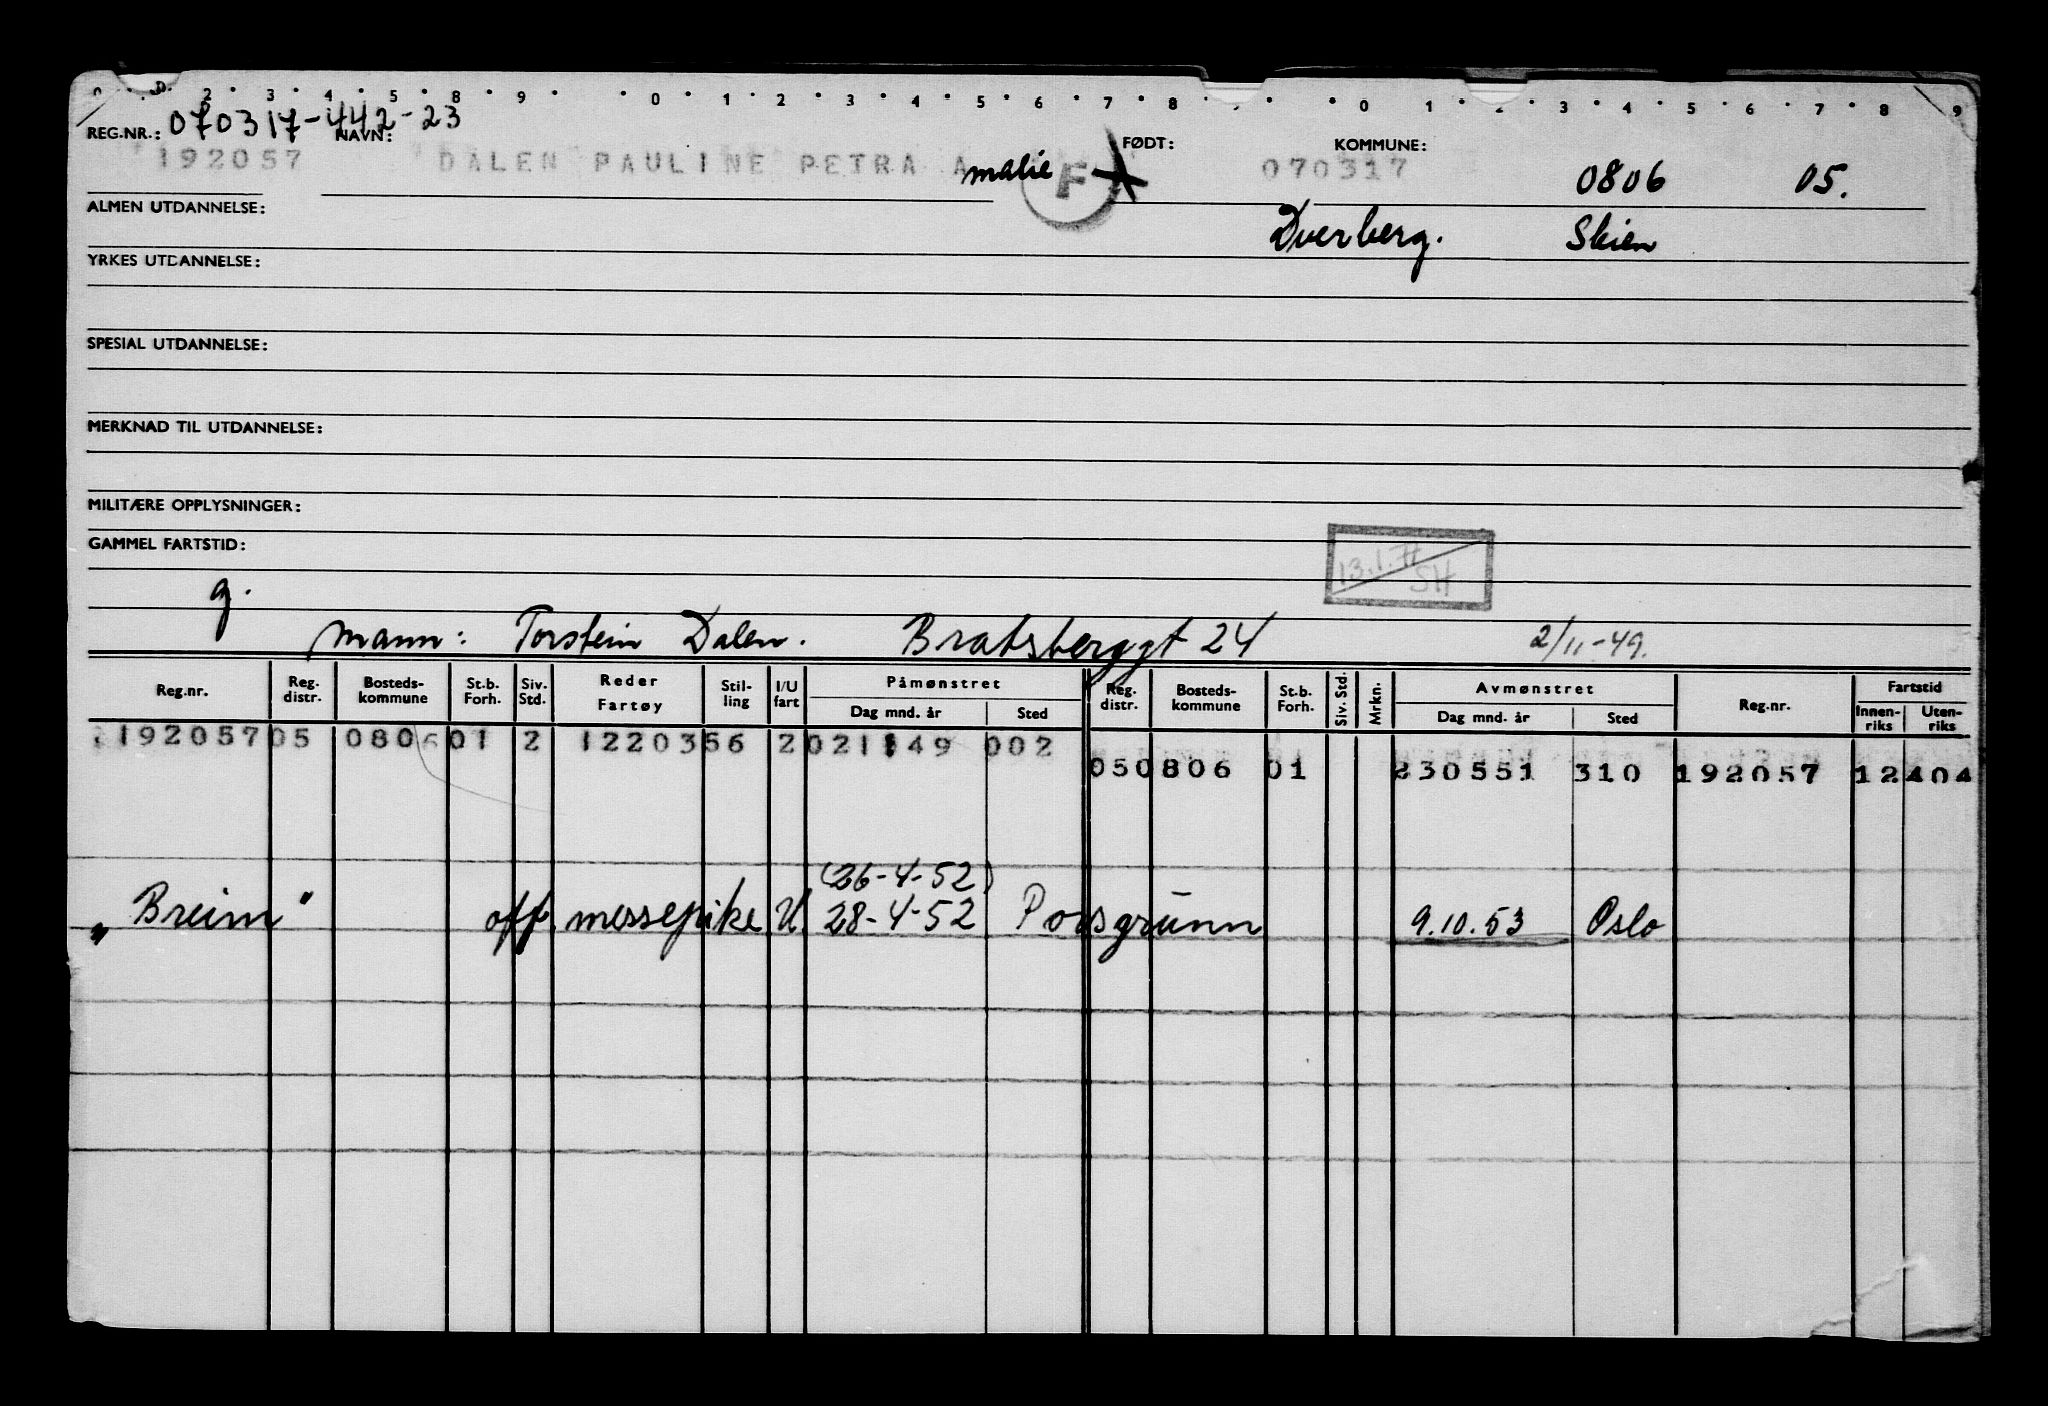 0 D. 2 3 4 5 8 9 0 1 2 3 4 5 6 7 8 0 1 2 3 4 5 6 7 8 9
REG.NR.: 070317-442-23 NAVN: FØDT: KOMMUNE:
192057 DALEN PAULINE PETRA Amalie F X 070317 0806 05.
ALMEN UTDANNELSE: Dverberg. Skien
YRKES UTDANNELSE:
SPESIAL UTDANNELSE:
MERKNAD TIL UTDANNELSE:
MILITÆRE OPPLYSNINGER:
GAMMEL FARTSTID:
13.1.71
SH
g.
Mann: Torstein Dalen. Bratsberggt 24 2/11-49.
Reg.nr. Reg. distr. Bosteds-kommune St.b. Forh. Siv. Std. Reder Fartøy Stil-ling I/U fart Påmønstret Dag mnd. år Sted Reg. distr. Bosteds-kommune St.b. Forh. Siv. Std. Mrkn. Avmønstret Dag mnd. år Sted Reg.nr. Fartstid Innen-riks Uten-riks
192057 05 0806 01 2 1220356 2 021149 002
05 0806 01 230551 310 192057 12 404
(26-4-52)
"Breim" off. messepike U 28-4-52 Porsgrunn 9.10.53 Oslo